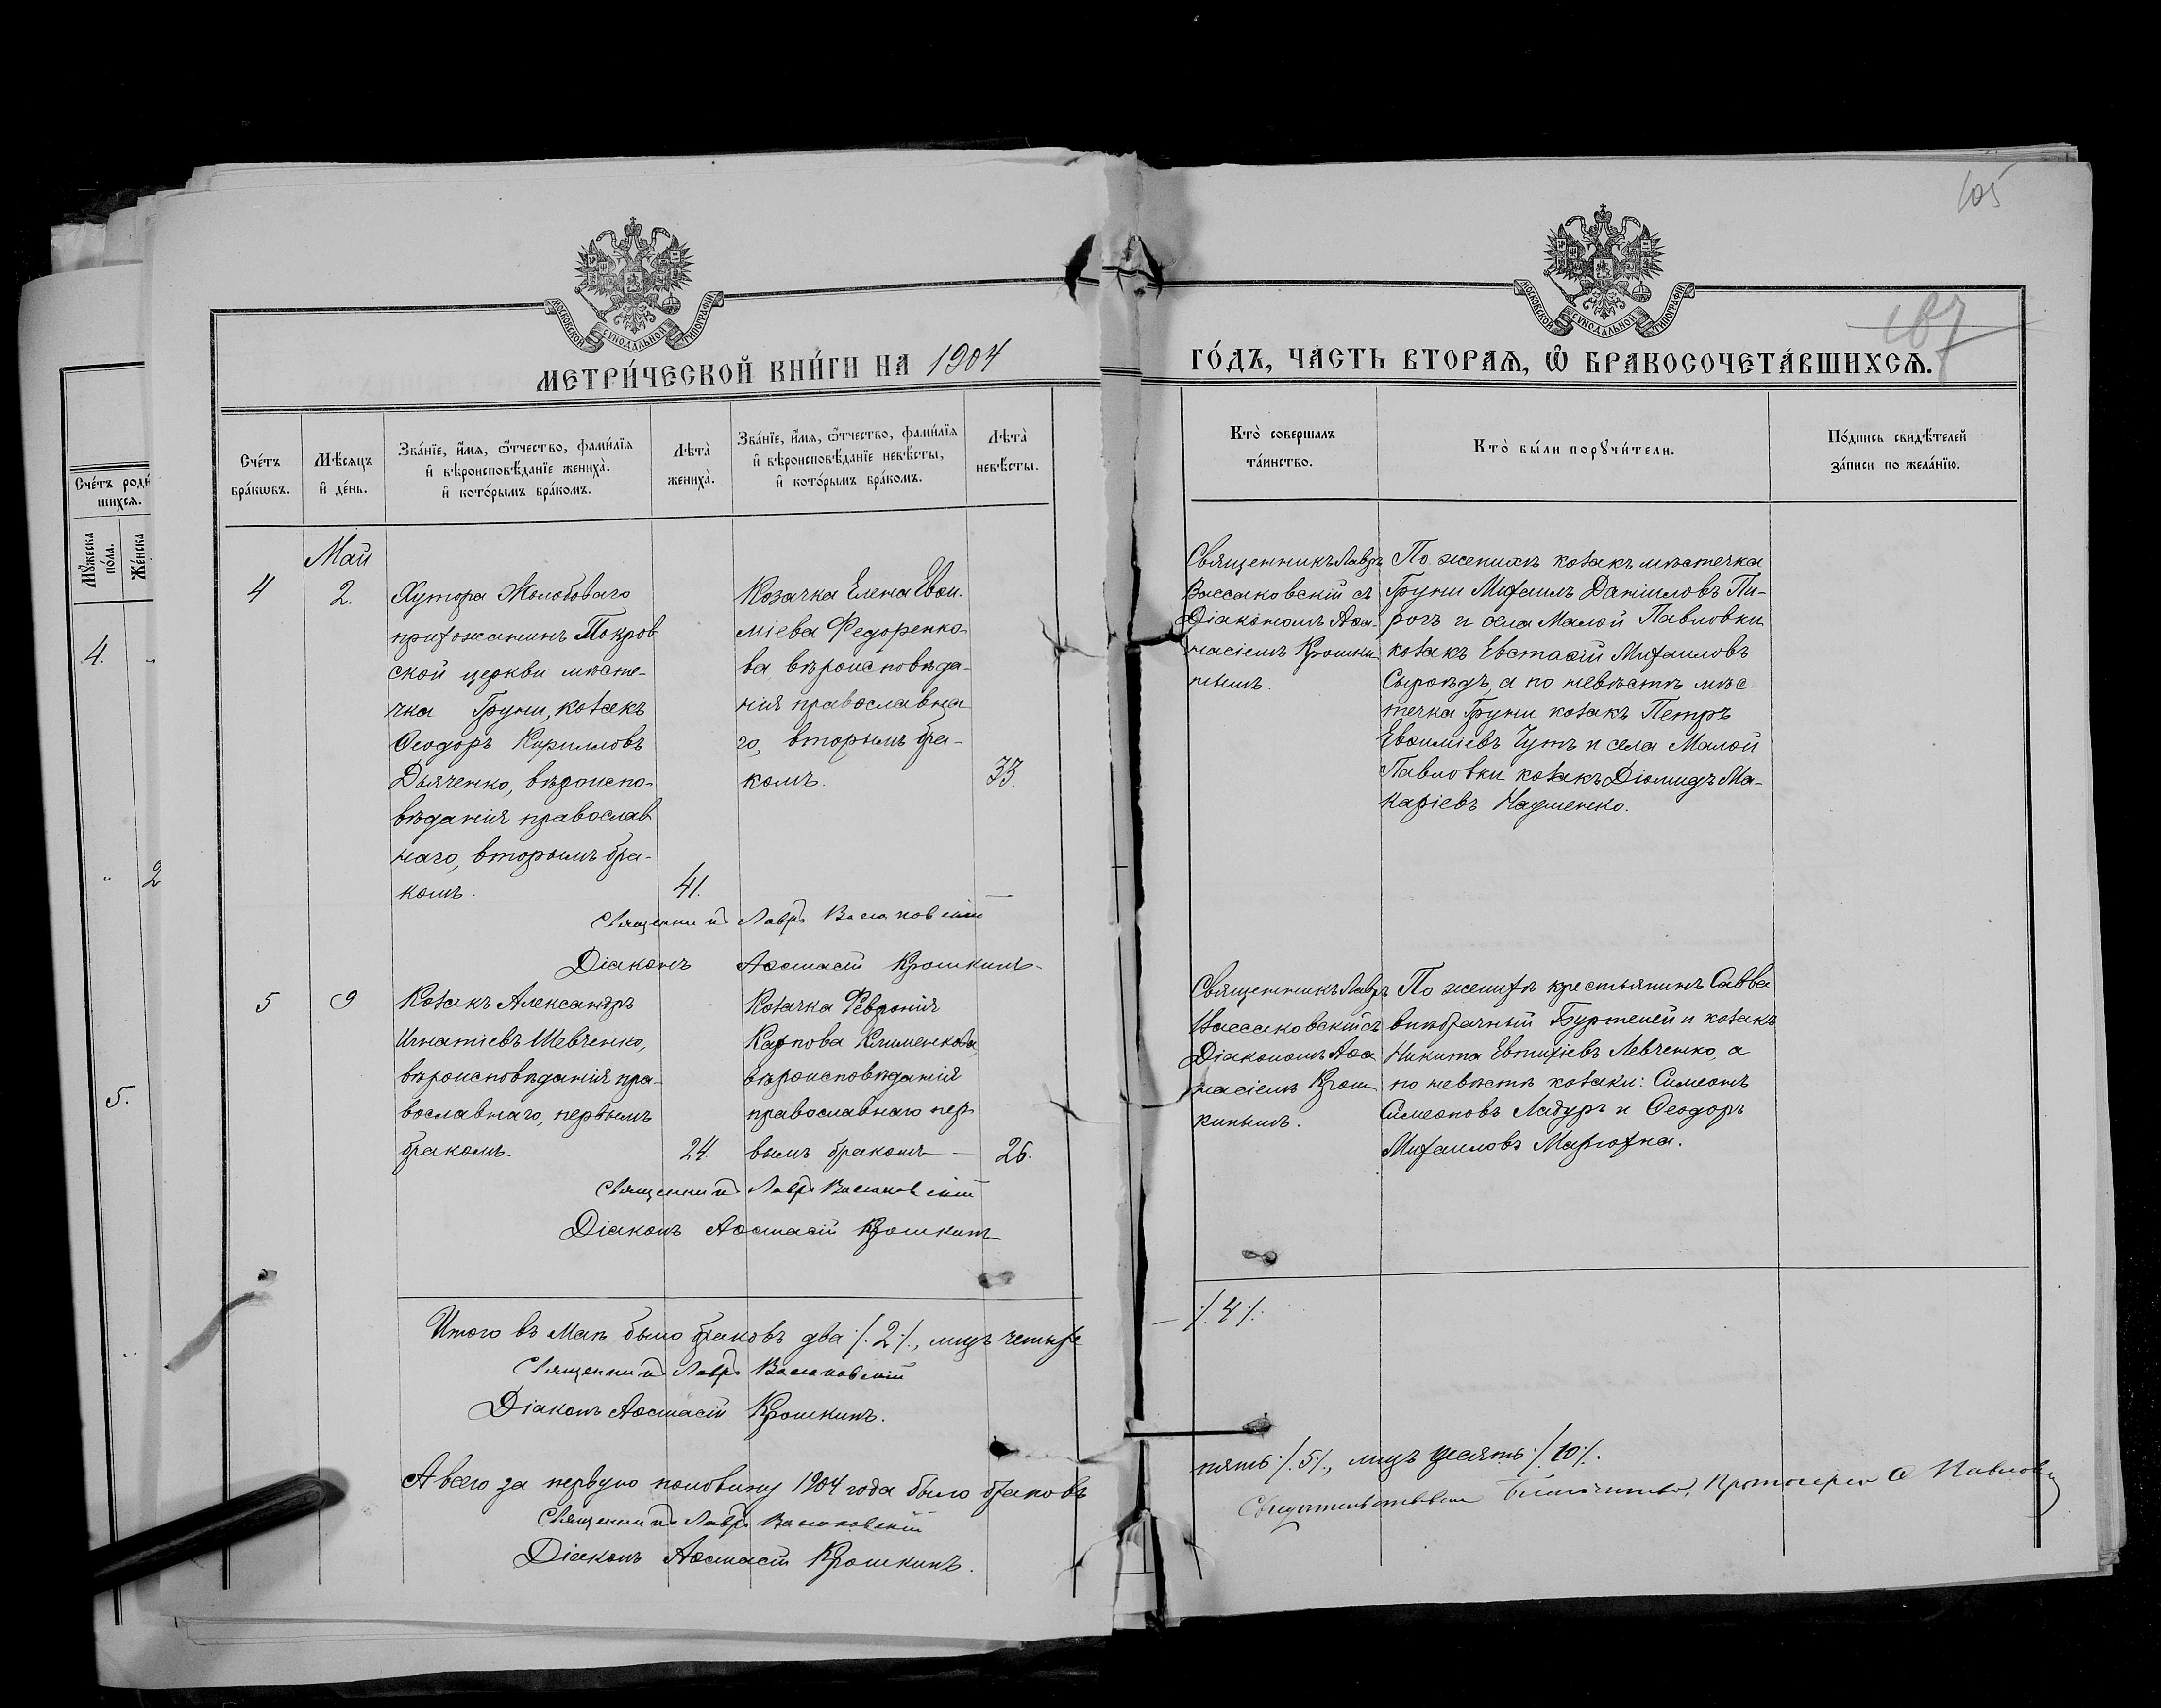 105
107
МОСКОВСКОЙ СѴНОДАЛЬНОЙ ТИПОГРАФІИ
МОСКОВСКОЙ СѴНОДАЛЬНОЙ ТИПОГРАФІИ
МЕТРИ́ЧЕСКОЙ КНИ́ГИ НА 1904
ГО́ДЪ, ЧА́СТЬ ВТОРАЯ, Ѡ҆ БРАКОСОЧЕТА́ВШИХСЯ.
Сче́тъ роди́вшихся.
Мꙋ́жеска по́ла.
Же́нска
4.
2
5.
Сче́тъ бра́кѡвъ.
Мѣ́сяцъ и҆ де́нь.
Зва́нїе, и҆́мя, ѻ҆́тчество, фами́лїя
и҆ вѣроисповѣ́данїе жениха̀.
и҆ кото́рымъ бра́комъ.
Лѣта̀ жениха̀.
Зва́нїе, и҆́мя, ѻ҆́тчество, фами́лїя
и҆ вѣроисповѣ́данїе невѣ́сты,
и҆ кото́рымъ бра́комъ.
Лѣта̀ невѣ́сты.
Кто̀ соверша́лъ та́инство.
Кто̀ бы́ли порꙋчи́тели.
По́дпись свидѣ́телей за́писи по жела́нїю.
Май
4
2.
Хутора Жолобоваго
прихожанинъ Покров
ской церкви мѣсте-
чка Груни, козакъ
Ѳеодоръ Кирилловъ
Дьяченко, вѣроиспо-
вѣданія православ
наго, вторымъ бра-
комъ.
41.
Козачка Елена Евѳи-
міева Федоренко-
ва вѣроисповѣда-
нія православна
го, вторымъ бра-
комъ.
33.
Священникъ Лавръ
Вассаковскій съ
Діакономъ Аѳа-
насіемъ Крошки
нымъ.
По женихѣ козакъ мѣстечка
Груни Михаилъ Даніиловъ Пи-
рогъ и села Малой Павловки
козакъ Евстаѳій Михаиловъ
Сыроѣдъ, а по невѣстѣ мѣс-
течка Груни козакъ Петръ
Евѳиміевъ Чутъ и села Малой
Павловки козакъ Діомидъ Ма-
каріевъ Науменко.
Священникъ Лавръ Вассаковскій
Діаконъ Аѳанасій Крошкинъ
5
9
Козакъ Александръ
Игнатіевъ Шевченко,
вѣроисповѣданія пра-
вославнаго, первымъ
бракомъ.
24.
Козачка Феѵронія
Карпова Клименкова,
вѣроисповѣданія
православнаго пер
вымъ бракомъ
26.
Священникъ Лавръ
Вассаковскій съ
Діакономъ Аѳа
насіемъ Крош
кинымъ.
По женихѣ крестьянинъ Савва
внѣбрачный Буртелей и козакъ
Никита Евтихіевъ Левченко, а
по невѣстѣ козаки: Симеонъ
Симеоновъ Ладуръ и Ѳеодоръ
Михаиловъ Марюхна.
Священникъ Лавръ Вассаковскій
Діаконъ Аѳанасій Крошкинъ
Итого въ Маѣ было браковъ два ./. 2 ./., лицъ четыре
./. 4 ./.
Священникъ Лавръ Вассаковскій
Діаконъ Аѳанасій Крошкинъ.
А всего за первую половину 1904 года было браковъ
пять ./. 5 ./., лицъ десять ./. 10 ./.
Священникъ Лавръ Вассаковскій
Діаконъ Аѳанасій Крошкинъ.
Свидѣтельствовалъ Благочинный, Протоіерей